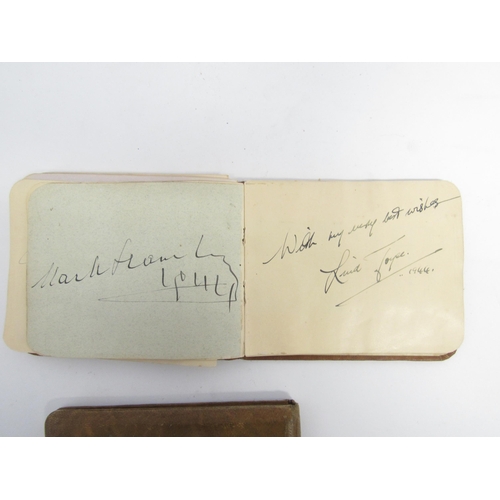 Mark Hambourg
1944
With my very best wishes
Joyce.
1944.